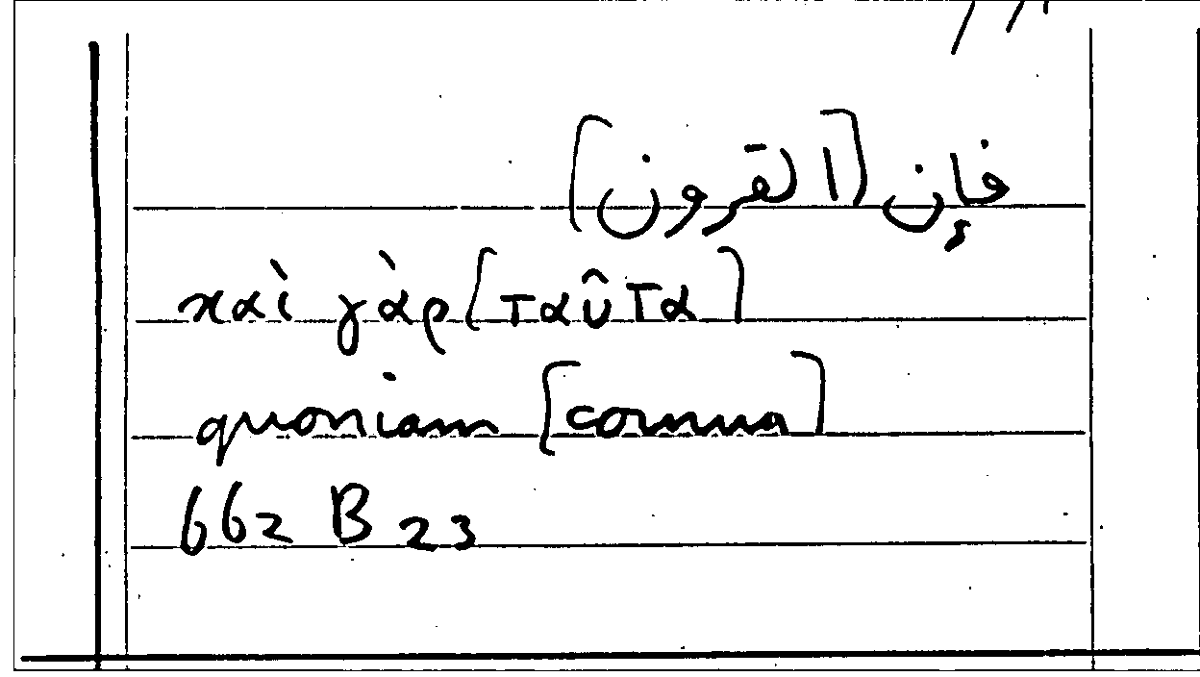 فإن [القرون]
καὶ γὰρ [ταῦτα]
quoniam [cornua]
662 B 23